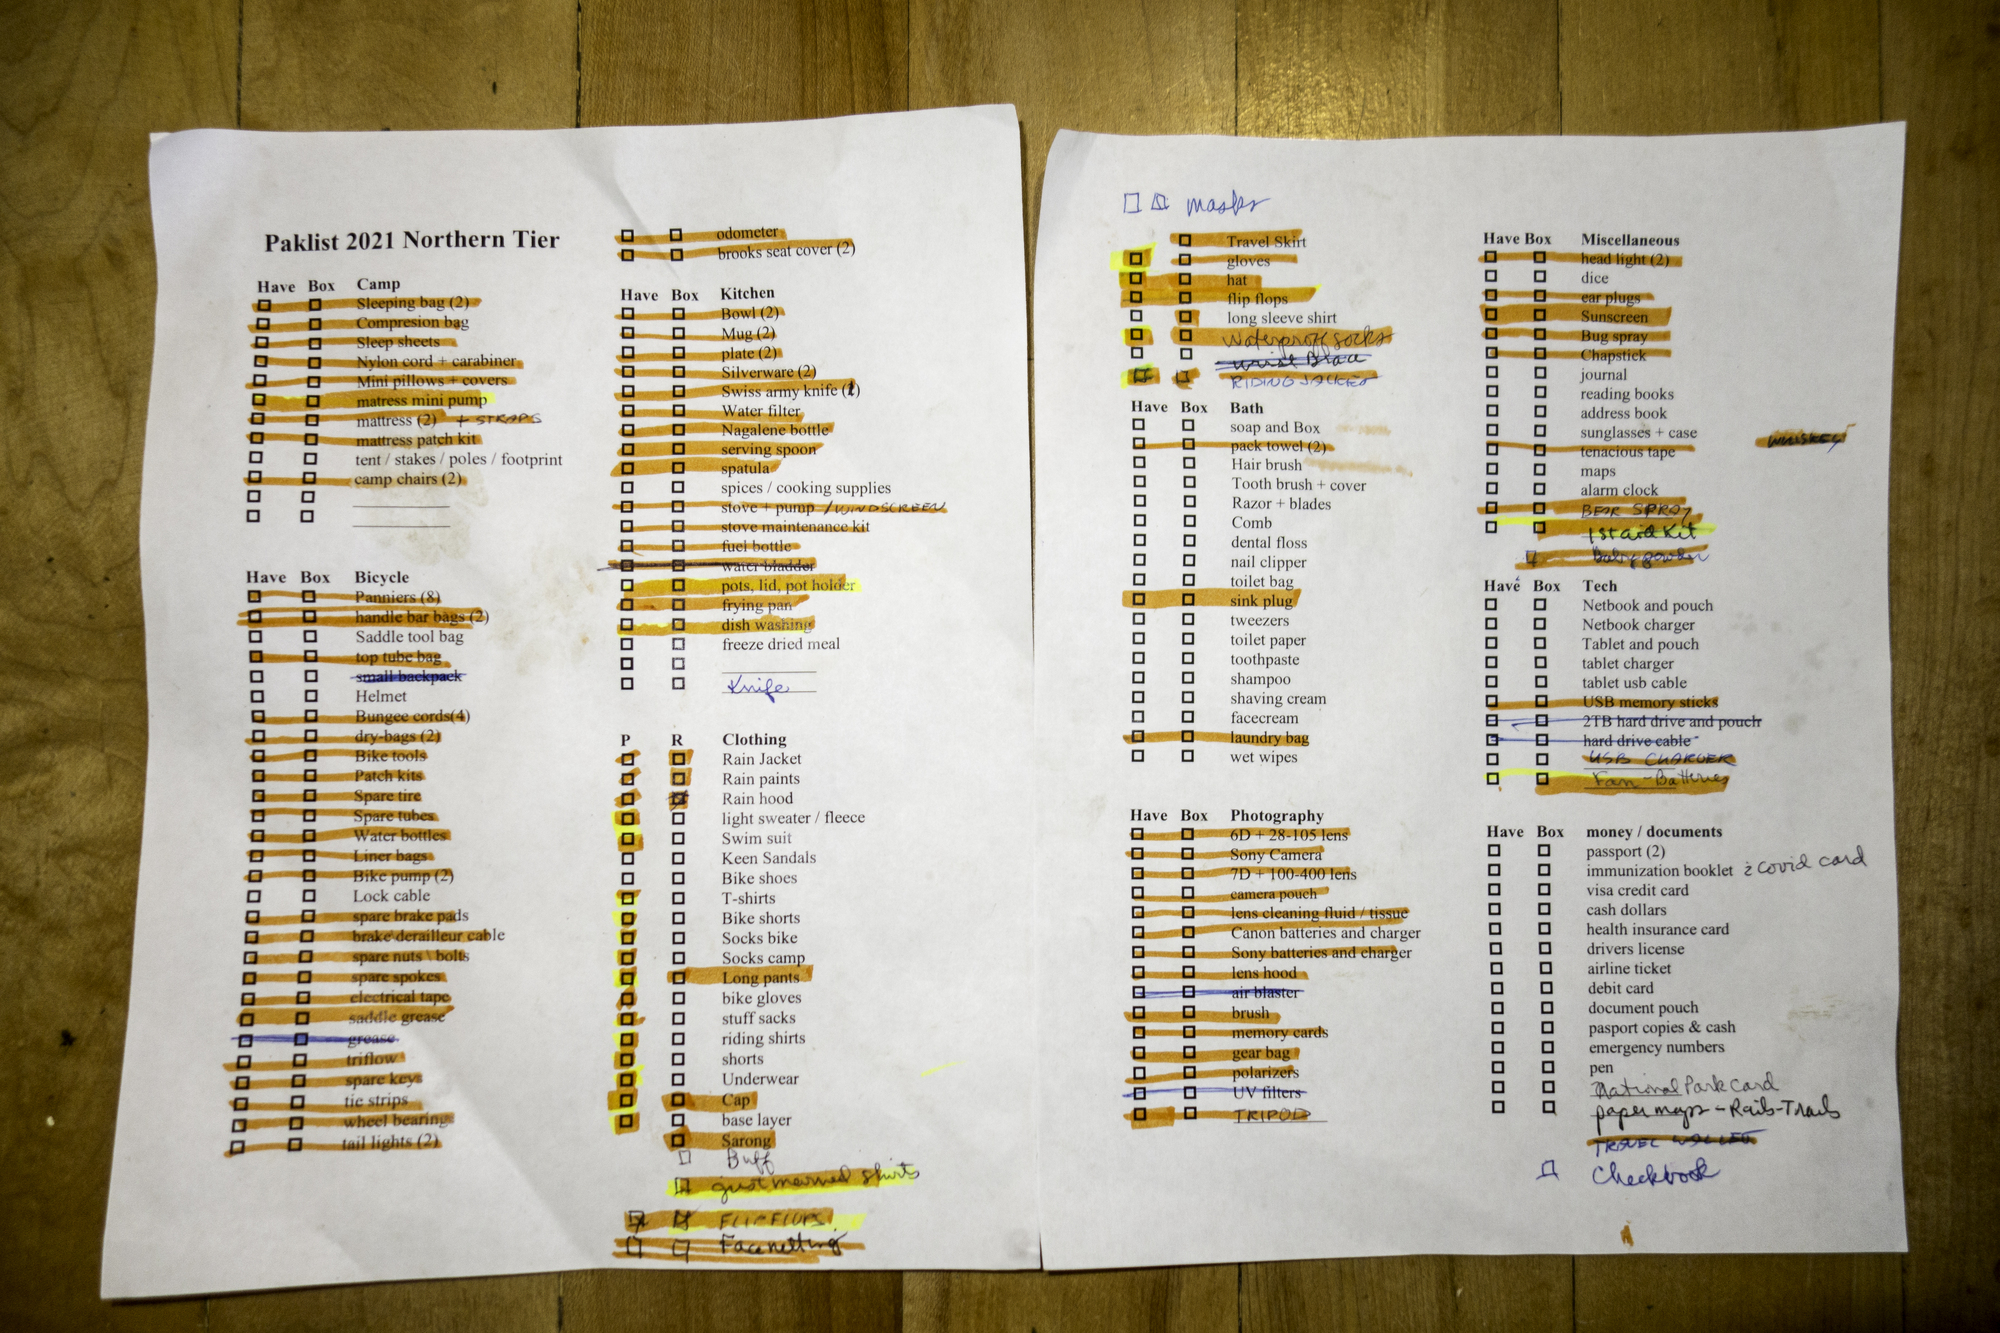 Paklist 2021 Northern Tier
Have Box Camp
Sleeping bag (2)
Compresion bag
Sleep sheets
Nylon cord + carabiner
Mini pillows + covers
matress mini pump
mattress (2) + STRAPS
mattress patch kit
tent / stakes / poles / footprint
camp chairs (2)
Have Box Bicycle
Panniers (8)
handle bar bags (2)
Saddle tool bag
top tube bag
small backpack
Helmet
Bungee cords(4)
dry-bags (2)
Bike tools
Patch kits
Spare tire
Spare tubes
Water bottles
Liner bags
Bike pump (2)
Lock cable
spare brake pads
brake derailleur cable
spare nuts \ bolts
spare spokes
electrical tape
saddle grease
grease
triflow
spare keys
tie strips
wheel bearings
tail lights (2)
odometer
brooks seat cover (2)
Have Box Kitchen
Bowl (2)
Mug (2)
plate (2)
Silverware (2)
Swiss army knife (1)
Water filter
Nagalene bottle
serving spoon
spatula
spices / cooking supplies
stove + pump / WINDSCREEN
stove maintenance kit
fuel bottle
water bladder
pots, lid, pot holder
frying pan
dish washing
freeze dried meal
Knife
P R Clothing
Rain Jacket
Rain paints
Rain hood
light sweater / fleece
Swim suit
Keen Sandals
Bike shoes
T-shirts
Bike shorts
Socks bike
Socks camp
Long pants
bike gloves
stuff sacks
riding shirts
shorts
Underwear
Cap
base layer
Sarong
Buff
just married shirts
FLIP FLOPS
Face netting
masks
Travel Skirt
gloves
hat
flip flops
long sleeve shirt
Waterproof socks
wrist Brace
RIDING JACKET
Have Box Bath
soap and Box
pack towel (2)
Hair brush
Tooth brush + cover
Razor + blades
Comb
dental floss
nail clipper
toilet bag
sink plug
tweezers
toilet paper
toothpaste
shampoo
shaving cream
facecream
laundry bag
wet wipes
Have Box Photography
6D + 28-105 lens
Sony Camera
7D + 100-400 lens
camera pouch
lens cleaning fluid / tissue
Canon batteries and charger
Sony batteries and charger
lens hood
air blaster
brush
memory cards
gear bag
polarizers
UV filters
TRIPOD
Have Box Miscellaneous
head light (2)
dice
ear plugs
Sunscreen
Bug spray
Chapstick
journal
reading books
address book
sunglasses + case
WHISKEY
tenacious tape
maps
alarm clock
BEAR SPRAY
1st aid Kit
Baby powder
Have Box Tech
Netbook and pouch
Netbook charger
Tablet and pouch
tablet charger
tablet usb cable
USB memory sticks
2TB hard drive and pouch
hard drive cable
USB CHARGER
Fan - Batteries
Have Box money / documents
passport (2)
immunization booklet & covid card
visa credit card
cash dollars
health insurance card
drivers license
airline ticket
debit card
document pouch
pasport copies & cash
emergency numbers
pen
National Park card
paper maps - Rails-Trails
TRAVEL WALLET
Checkbook